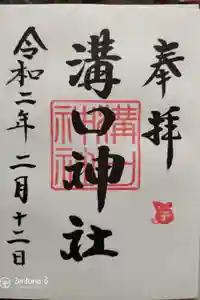 奉拝
溝口神社
溝口神社
令和二年二月十二日
Zenfone 6